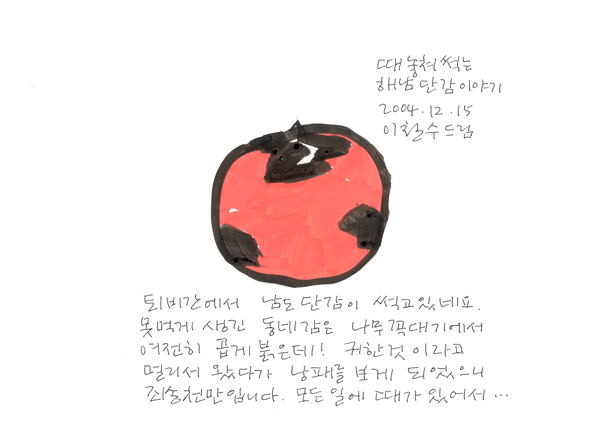 때 놓쳐 썩는
해남 단감 이야기
2004.12.15
이철수 드림
퇴비간에서 남도 단감이 썩고있네요.
못먹게 생긴 동네감은 나무꼭대기에서
여전히 곱게 붉은데! 귀한것이라고
멀리서 왔다가 낭패를 보게 되었으니
죄송천만입니다. 모든 일에 때가 있어서...